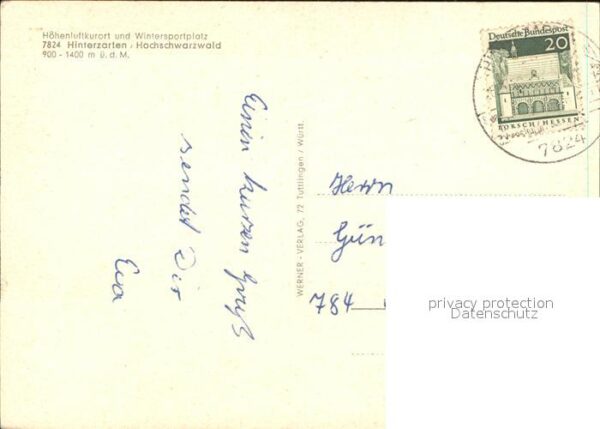 Höhenluftkurort und Wintersportplatz
7824 Hinterzarten / Hochschwarzwald
900 - 1400 m ü. d. M.
Einen kurzen Gruß
sendet Dir
Eva
WERNER - VERLAG, 72 Tuttlingen / Württ.
Deutsche Bundespost
20
LORSCH/HESSEN
7824
Herrn
Gün
784
privacy protection
Datenschutz